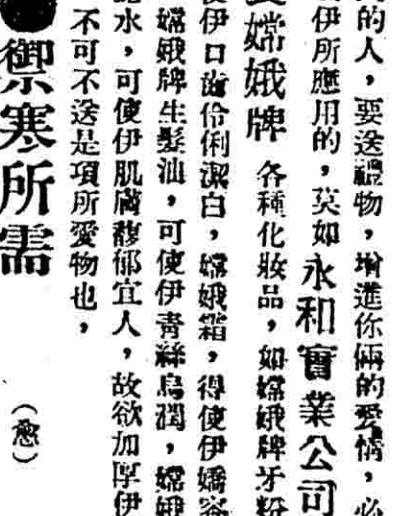 的人，要送禮物，增進你倆的愛情，必
伊所應用的，莫如永和實業公司
嫦娥牌各種化妝品，如嫦娥牌牙粉
使伊口齒伶俐潔白，嫦娥霜，得使伊嬌容
嫦娥牌生髮油，可使伊青絲烏潤，嫦娥
水，可使伊肌膚馥郁宜人，故欲加厚伊
不可不送是項所愛物也，
禦寒所需
（愈）